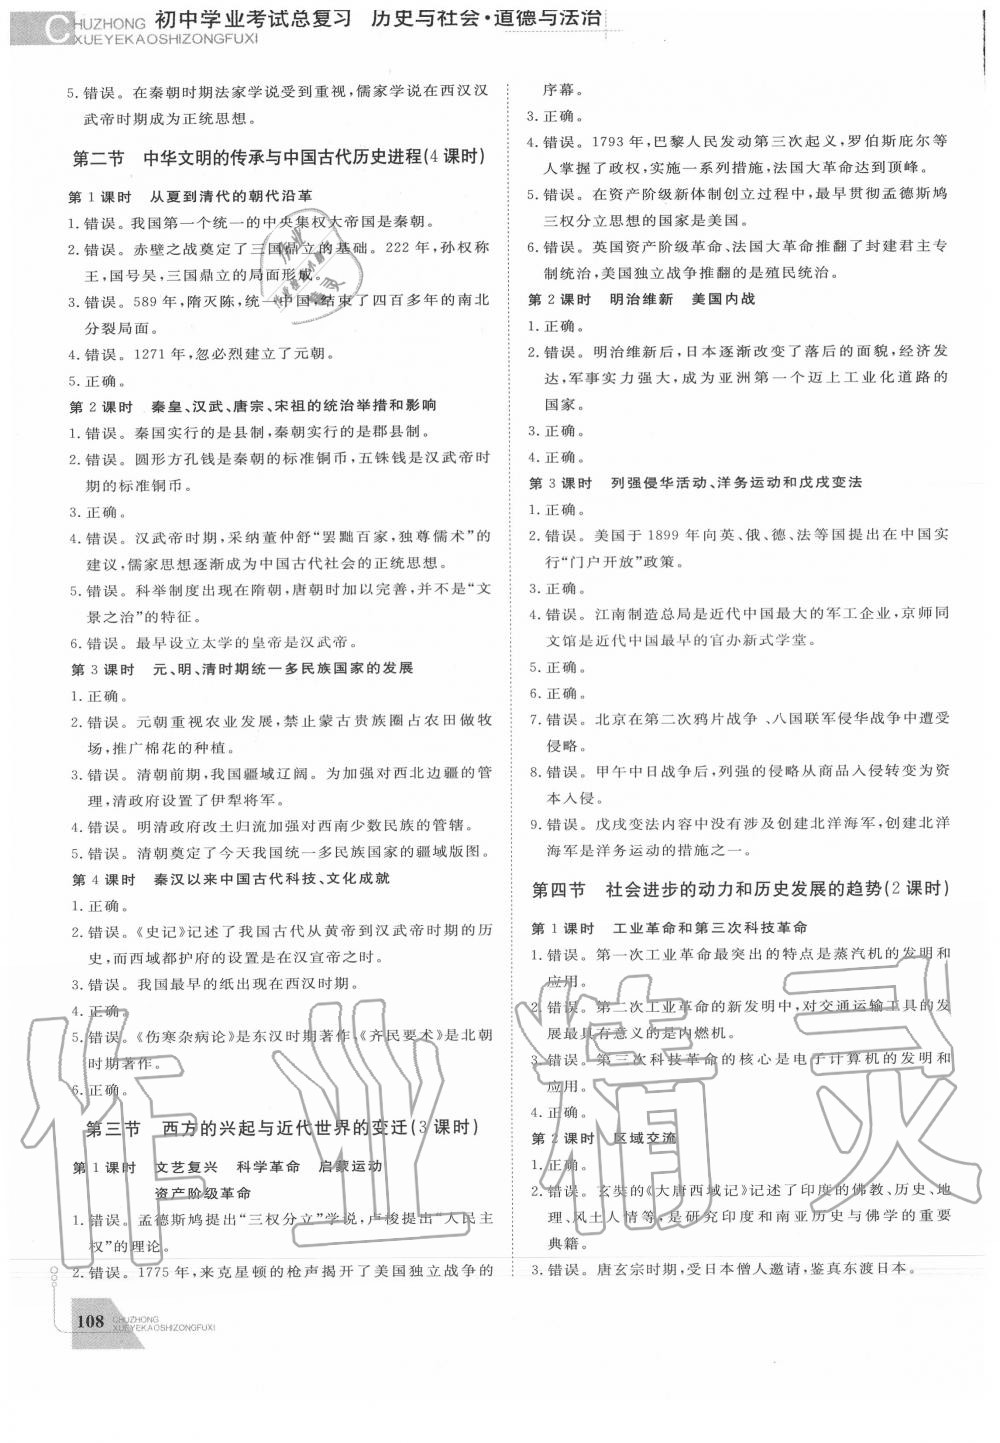 初中学业考试总复习 历史与社会·道德与法治
CHUZHONG
XUEYEKAOSHIZONGFUXI
5. 错误。在秦朝时期法家学说受到重视,儒家学说在西汉汉
武帝时期成为正统思想。
第二节 中华文明的传承与中国古代历史进程(4 课时)
第 1 课时 从夏到清代的朝代沿革
1. 错误。我国第一个统一的中央集权大帝国是秦朝。
2. 错误。赤壁之战奠定了三国鼎立的基础。222 年,孙权称
王,国号吴,三国鼎立的局面形成。
3. 错误。589 年,隋灭陈,统一中国,结束了四百多年的南北
分裂局面。
4. 错误。1271 年,忽必烈建立了元朝。
5. 正确。
第 2 课时 秦皇、汉武、唐宗、宋祖的统治举措和影响
1. 错误。秦国实行的是县制,秦朝实行的是郡县制。
2. 错误。圆形方孔钱是秦朝的标准铜币,五铢钱是汉武帝时
期的标准铜币。
3. 正确。
4. 错误。汉武帝时期,采纳董仲舒“罢黜百家,独尊儒术”的
建议,儒家思想逐渐成为中国古代社会的正统思想。
5. 错误。科举制度出现在隋朝,唐朝时加以完善,并不是“文
景之治”的特征。
6. 错误。最早设立太学的皇帝是汉武帝。
第 3 课时 元、明、清时期统一多民族国家的发展
1. 正确。
2. 错误。元朝重视农业发展,禁止蒙古贵族圈占农田做牧
场,推广棉花的种植。
3. 错误。清朝前期,我国疆域辽阔。为加强对西北边疆的管
理,清政府设置了伊犁将军。
4. 错误。明清政府改土归流加强对西南少数民族的管辖。
5. 错误。清朝奠定了今天我国统一多民族国家的疆域版图。
第 4 课时 秦汉以来中国古代科技、文化成就
1. 正确。
2. 错误。《史记》记述了我国古代从黄帝到汉武帝时期的历
史,而西域都护府的设置是在汉宣帝之时。
3. 错误。我国最早的纸出现在西汉时期。
4. 正确。
5. 错误。《伤寒杂病论》是东汉时期著作,《齐民要术》是北朝
时期著作。
6. 正确。
第三节 西方的兴起与近代世界的变迁(3 课时)
第 1 课时 文艺复兴 科学革命 启蒙运动
资产阶级革命
1. 错误。孟德斯鸠提出“三权分立”学说,卢梭提出“人民主
权”的理论。
2. 错误。1775 年,来克星顿的枪声揭开了美国独立战争的
序幕。
3. 正确。
4. 错误。1793 年,巴黎人民发动第三次起义,罗伯斯庇尔等
人掌握了政权,实施一系列措施,法国大革命达到顶峰。
5. 错误。在资产阶级新体制创立过程中,最早贯彻孟德斯鸠
三权分立思想的国家是美国。
6. 错误。英国资产阶级革命、法国大革命推翻了封建君主专
制统治,美国独立战争推翻的是殖民统治。
第 2 课时 明治维新 美国内战
1. 正确。
2. 错误。明治维新后,日本逐渐改变了落后的面貌,经济发
达,军事实力强大,成为亚洲第一个迈上工业化道路的
国家。
3. 正确。
4. 正确。
第 3 课时 列强侵华活动、洋务运动和戊戌变法
1. 正确。
2. 错误。美国于 1899 年向英、俄、德、法等国提出在中国实
行“门户开放”政策。
3. 正确。
4. 错误。江南制造总局是近代中国最大的军工企业,京师同
文馆是近代中国最早的官办新式学堂。
5. 正确。
6. 正确。
7. 错误。北京在第二次鸦片战争、八国联军侵华战争中遭受
侵略。
8. 错误。甲午中日战争后,列强的侵略从商品入侵转变为资
本入侵。
9. 错误。戊戌变法内容中没有涉及创建北洋海军,创建北洋
海军是洋务运动的措施之一。
第四节 社会进步的动力和历史发展的趋势(2 课时)
第 1 课时 工业革命和第三次科技革命
1. 错误。第一次工业革命最突出的特点是蒸汽机的发明和
应用。
2. 错误。第二次工业革命的新发明中,对交通运输工具的发
展最具有意义的是内燃机。
3. 错误。第三次科技革命的核心是电子计算机的发明和
应用。
4. 正确。
第 2 课时 区域交流
1. 正确。
2. 错误。玄奘的《大唐西域记》记述了印度的佛教、历史、地
理、风土人情等,是研究印度和南亚历史与佛学的重要
典籍。
3. 错误。唐玄宗时期,受日本僧人邀请,鉴真东渡日本。
108
CHUZHONG
XUEYEKAOSHIZONGFUXI
作业精灵